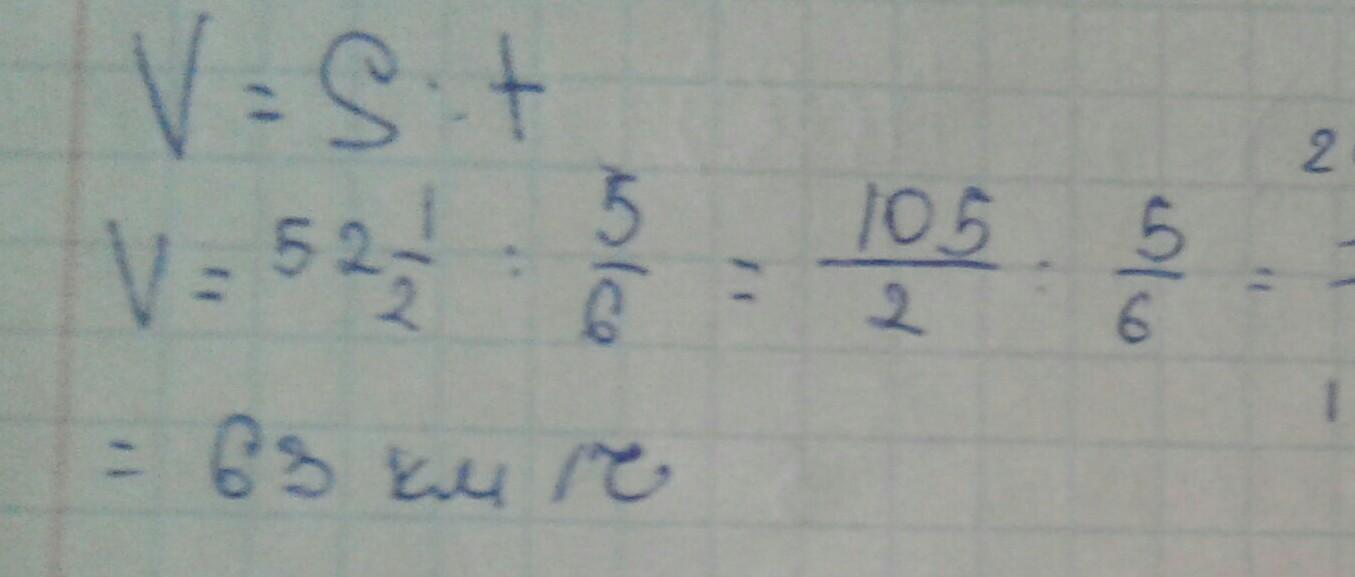 V = S : t
V = 52 1/2 : 5/6 = 105/2 : 5/6 =
= 63 км/ч